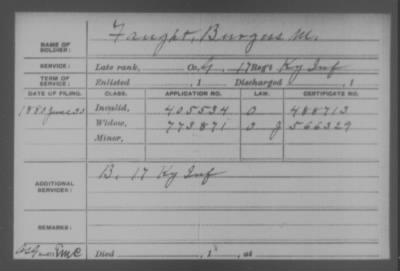 NAME OF SOLDIER: Faught, Burgess M.
SERVICE: Late rank, Co. G, 17 Reg't Ky Inf
TERM OF SERVICE: Enlisted , 1 Discharged , 1
DATE OF FILING. CLASS. APPLICATION NO. LAW. CERTIFICATE NO.
1880 June 23 Invalid, 405534 O 488713
Widow, 773871 O 566329
Minor,
ADDITIONAL SERVICES: B. 17 Ky Inf
REMARKS:
Died , 1 , at